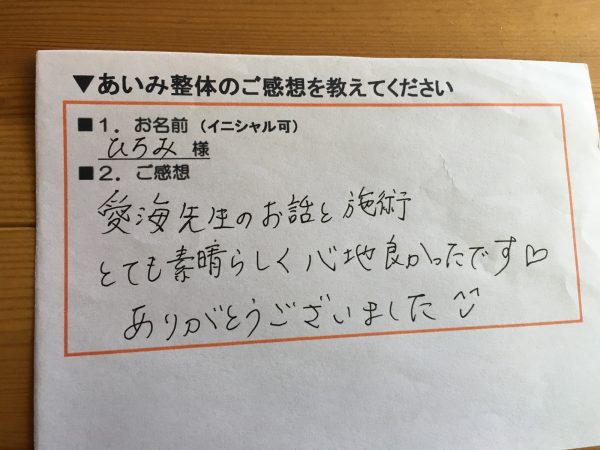 ▼あいみ整体のご感想を教えてください
■１．お名前（イニシャル可）
ひろみ 様
■２．ご感想
愛海先生のお話と施術
とても素晴らしく心地良かったです♡
ありがとうございました